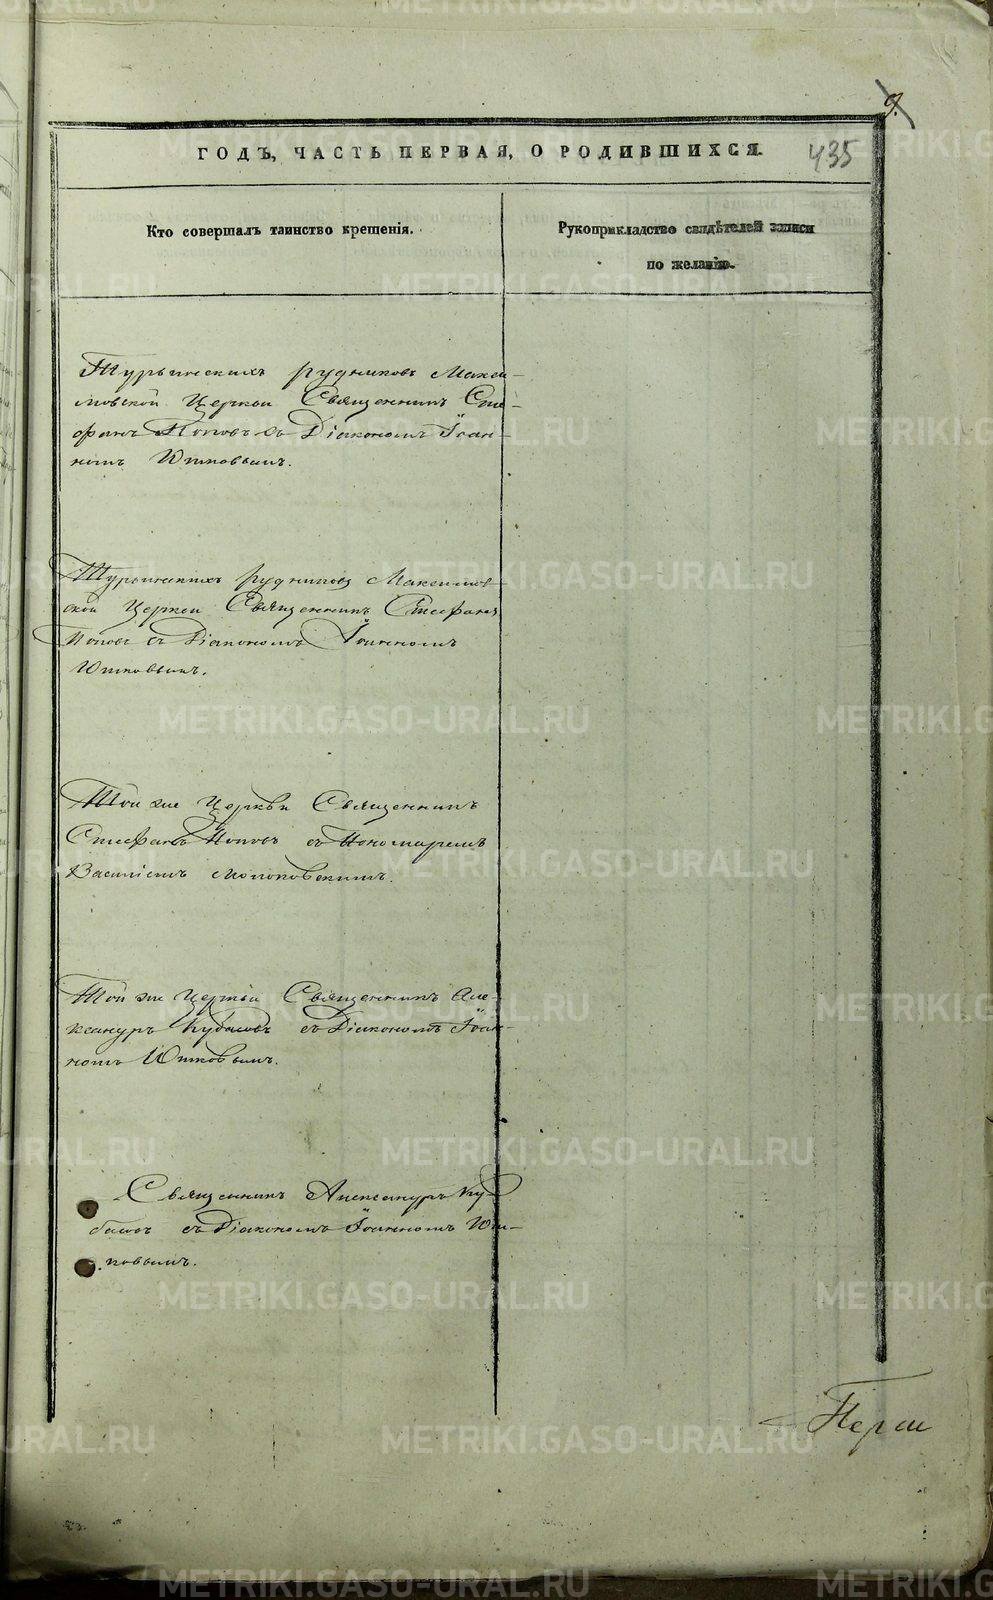 9.
ГОДЪ, ЧАСТЬ ПЕРВАЯ, О РОДИВШИХСЯ.
435
Кто совершалъ таинство крещенія.
Рукоприкладство свидѣтелей записи
по желанію.
Турьинскихъ рудниковъ Макси-
мовской Церкви Священникъ Сте-
фанъ Поповъ съ Діакономъ Іоан-
номъ Утковымъ.
Турьинскихъ рудниковъ Максимов-
ской Церкви Священникъ Стефанъ
Поповъ съ Діакономъ Іоанномъ
Утковымъ.
Той же Церкви Священникъ
Стефанъ Поповъ съ Пономаремъ
Василіемъ
Той же Церкви Священникъ Але-
ксандръ Кубасовъ съ Діакономъ Іоан-
номъ Утковымъ.
Священникъ Александръ Ку-
басовъ съ Діакономъ Іоанномъ Ут-
ковымъ.
METRIKI.GASO-URAL.RU